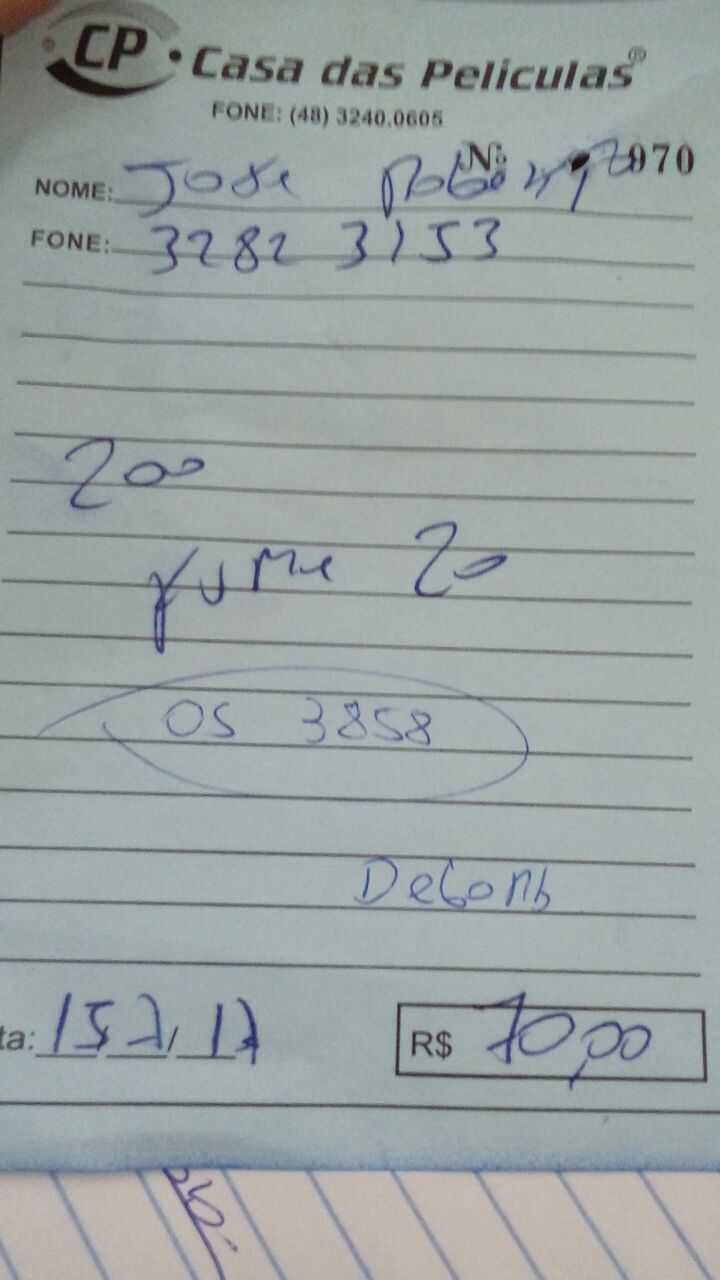 CP • Casa das Peliculas®
FONE: (48) 3240.0605
Nº 970
NOME: Jose
FONE: 3282 3153
200
fume 20
OS 3858
ta: 15 7 / 17
R$ 70,00